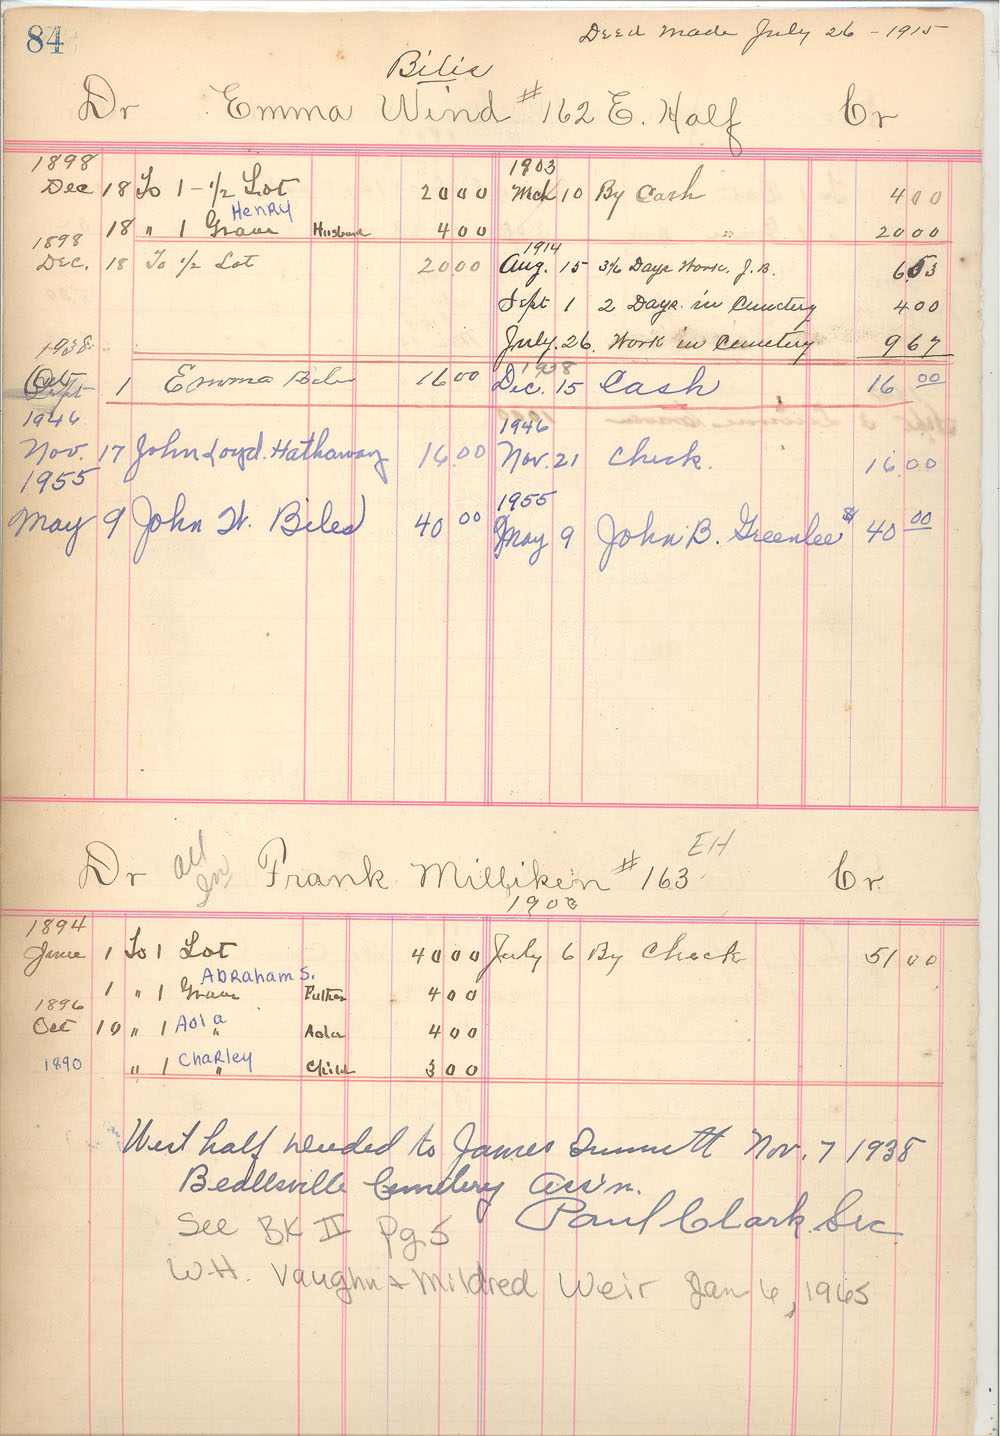 84
Deed made July 26 - 1915
Bilis
Dr Emma Wind #162 E. Half Cr
1898 1903
Dec 18 To 1 - 1/2 Lot 20 00 Mch 10 By Cash 4 00
Henry
18 " 1 Grave Husband 4 00 " 20 00
1898 1914
Dec. 18 To 1/2 Lot 20 00 Aug. 15 Days Work. J.B. 6 53
Sept 1 2 Days. in Cemetery 4 00
July. 26. Work in Cemetery 9 67
1938 1938
Oct 1 Emma 16 00 Dec. 15 Cash 16 00
1946 1946
Nov. 17 John Loyd. Hathaway 16.00 Nov. 21 Check. 16.00
1955 1955
May 9 John W. Biles 40 00 May 9 John B. Greenlee $ 40 00
All In EH
Dr Frank Milliken #163 Cr.
1894
June 1 To 1 Lot 40 00 July 6 By Check 51 00
Abraham S.
1 " 1 Grave Father 4 00
1896
Oct 10 " 1 Aola " Aola 4 00
1890 " 1 Charley " Child 3 00
West half deeded to James Nov. 7 1938
Beallsville Cemetery Ass'n.
Paul Clark Sec.
See BK II Pg 5
W.H. Vaughn & Mildred Weir Jan 6, 1965